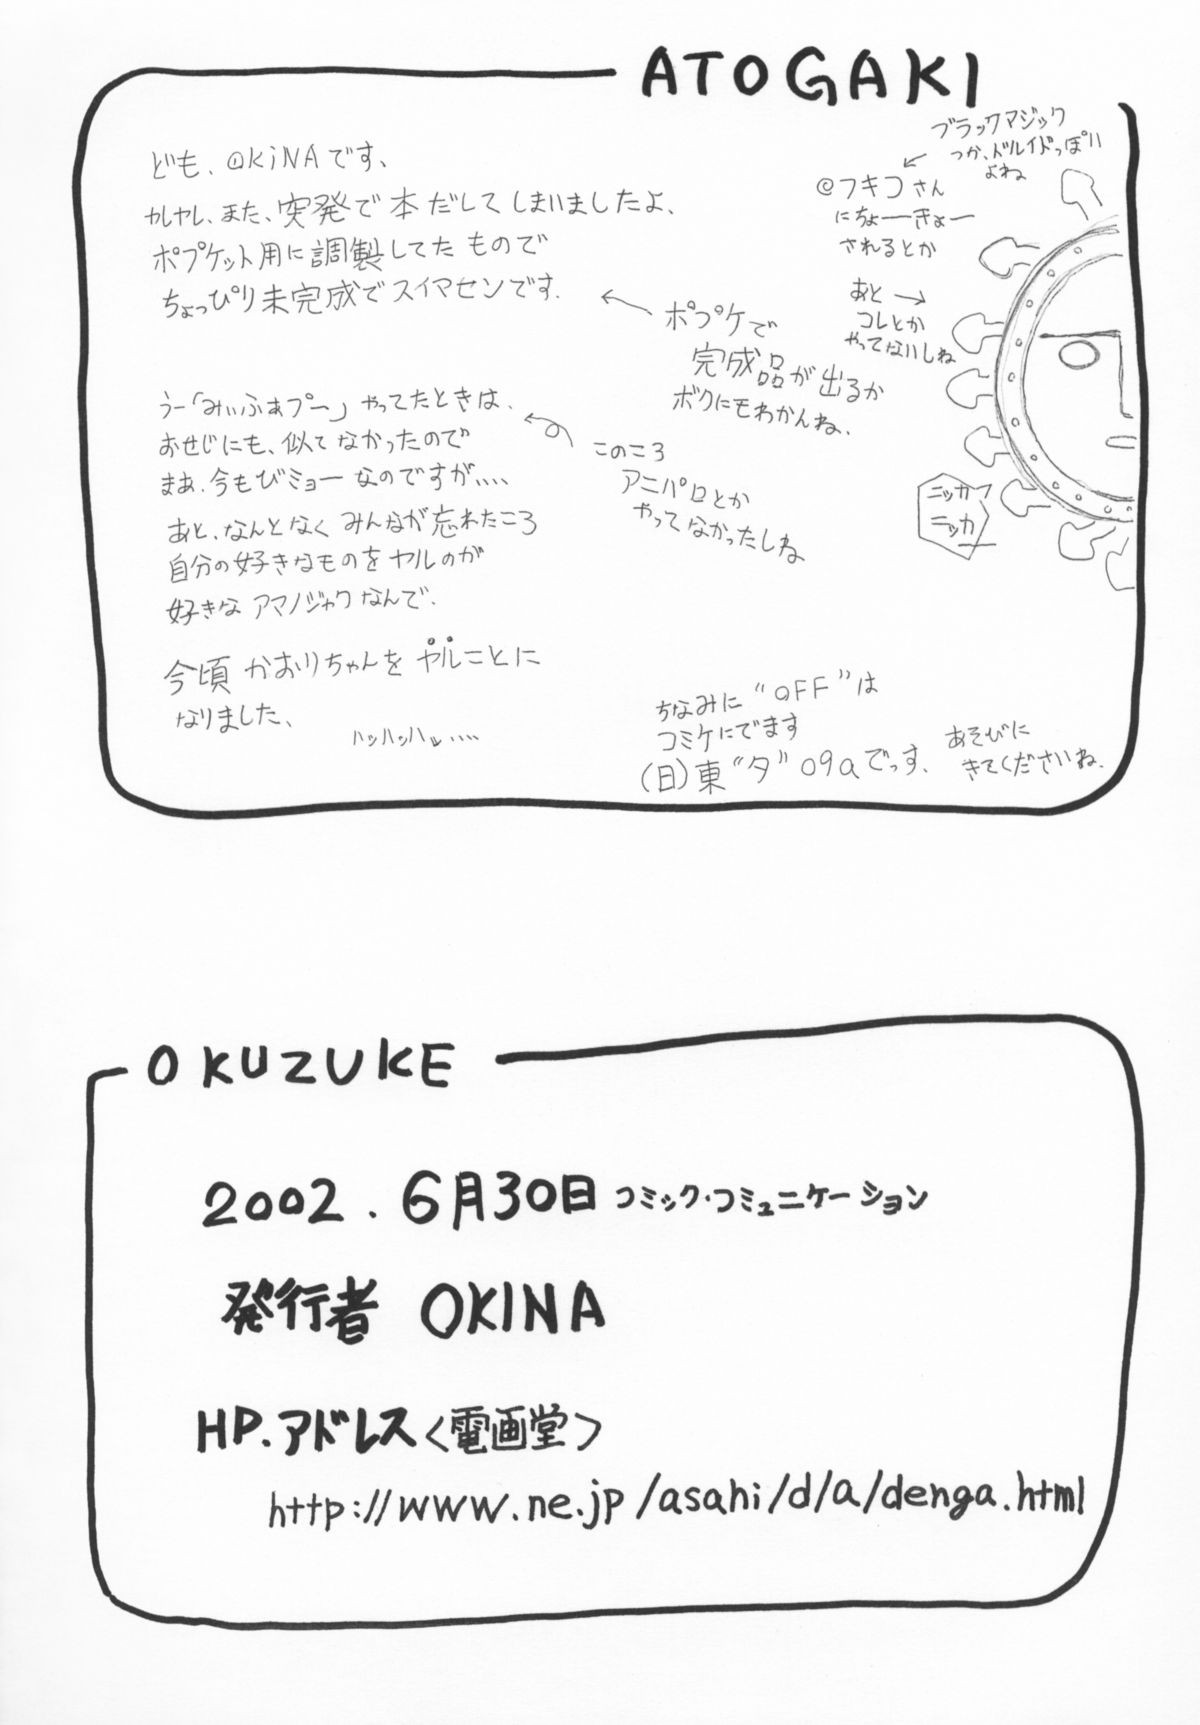 ATOGAKI
ども、OKiNAです、
ヤレヤレ、また、突発で本だしてしまいましたよ、
ポプケット用に調製してたもので
ちょっぴり未完成でスイマセンです.
ポプケで
完成品が出るか
ボクにもわかんね、
ブラックマジック
つか、ドルイドっぽい
よね
@フキコさん
にちょーきょー
されるとか
あと
コレとか
やってないしね
うー「みぃふぁプー」やってたときは、
おせじにも、似てなかったので
まあ、今もびミョーなのですが、、、、
このころ
アニパロとか
やってなかったしね
あと、なんとなくみんなが忘れたころ
自分の好きなものをヤルのが
好きなアマノジャクなんで、
今頃かおりちゃんをヤルことに
なりました、
ハッハッハッ・・・・
ニッカ
ニッカ
ー
ちなみに“OFF”は
コミケにでます
(日)東“タ”09aでっす、
あそびに
きてくださいね、
OKUZUKE
2002.6月30日コミック・コミュニケーション
発行者 OKINA
HP.アドレス〈電画堂〉
http://www.ne.jp/asahi/d/a/denga.html